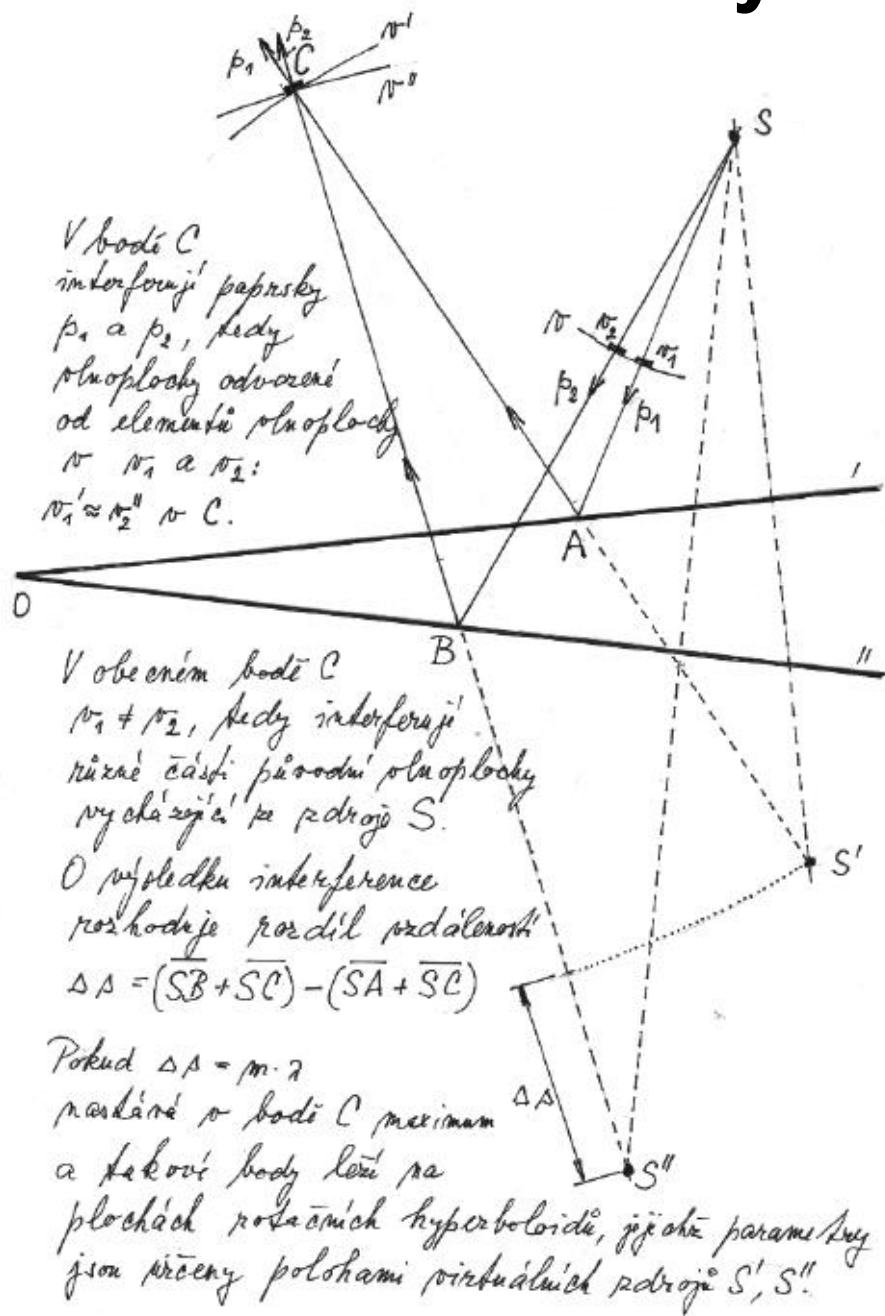 p₁ p₂ C v' v''
S
V bodě C
interferují paprsky
p₁ a p₂, tedy
vlnoplochy odvozené
od elementů vlnoplochy
v v₁ a v₂:
v₁' ≈ v₂'' v C.
v v₂ v₁
p₂ p₁
I
A
O
B
II
V obecném bodě C
v₁ ≠ v₂, tedy interferují
různé části původní vlnoplochy
vycházející ze zdroje S.
O výsledku interference
rozhoduje rozdíl vzdáleností
Δs = (S̅B̅ + S̅C̅) − (S̅A̅ + S̅C̅)
S'
Pokud Δs = m·λ
nastává v bodě C maximum
a takové body leží na
plochách rotačních hyperboloidů, jejichž parametry
jsou určeny polohami virtuálních zdrojů S', S''.
Δs
S''